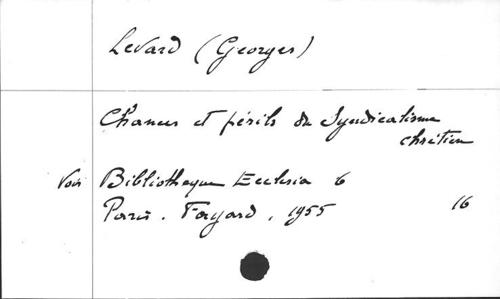 Levard (Georges)
Chances et périls du Syndicalisme
chrétien
Voir Bibliothèque Ecclesia 6
Paris. Fayard, 1955 16